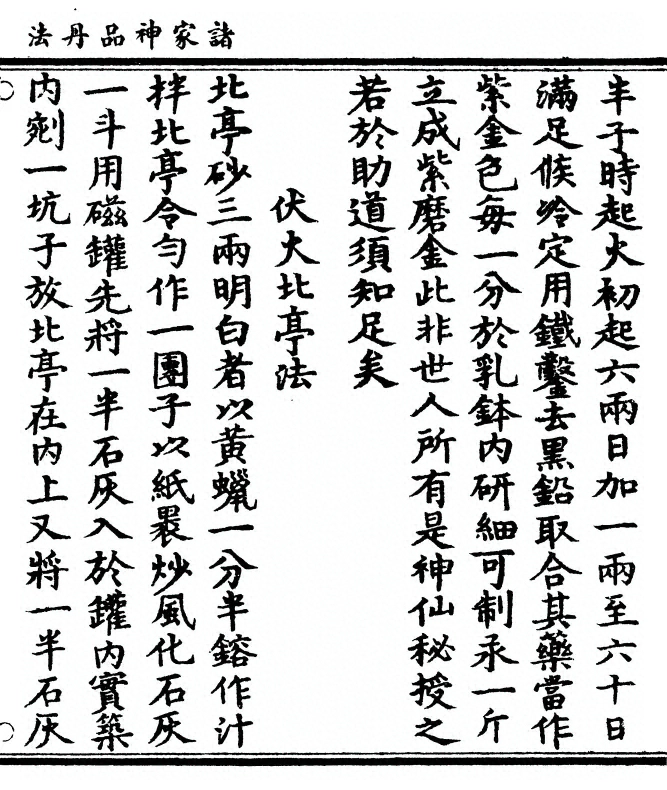 諸家神品丹法
半子時起火初起六兩日加一兩至六十日
滿足候冷定用鐵鑿去黑鉛取合其藥當作
紫金色每一分於乳鉢内研細可制汞一斤
立成紫磨金此非世人所有是神仙秘授之
若於助道須知足矣
伏火北亭法
北亭砂三兩明白者以黃蠟一分半鎔作汁
拌北亭令勻作一團子以紙褁炒風化石灰
一斗用磁罐先將一半石灰入於罐内實築
内剜一坑子放北亭在内上又將一半石灰